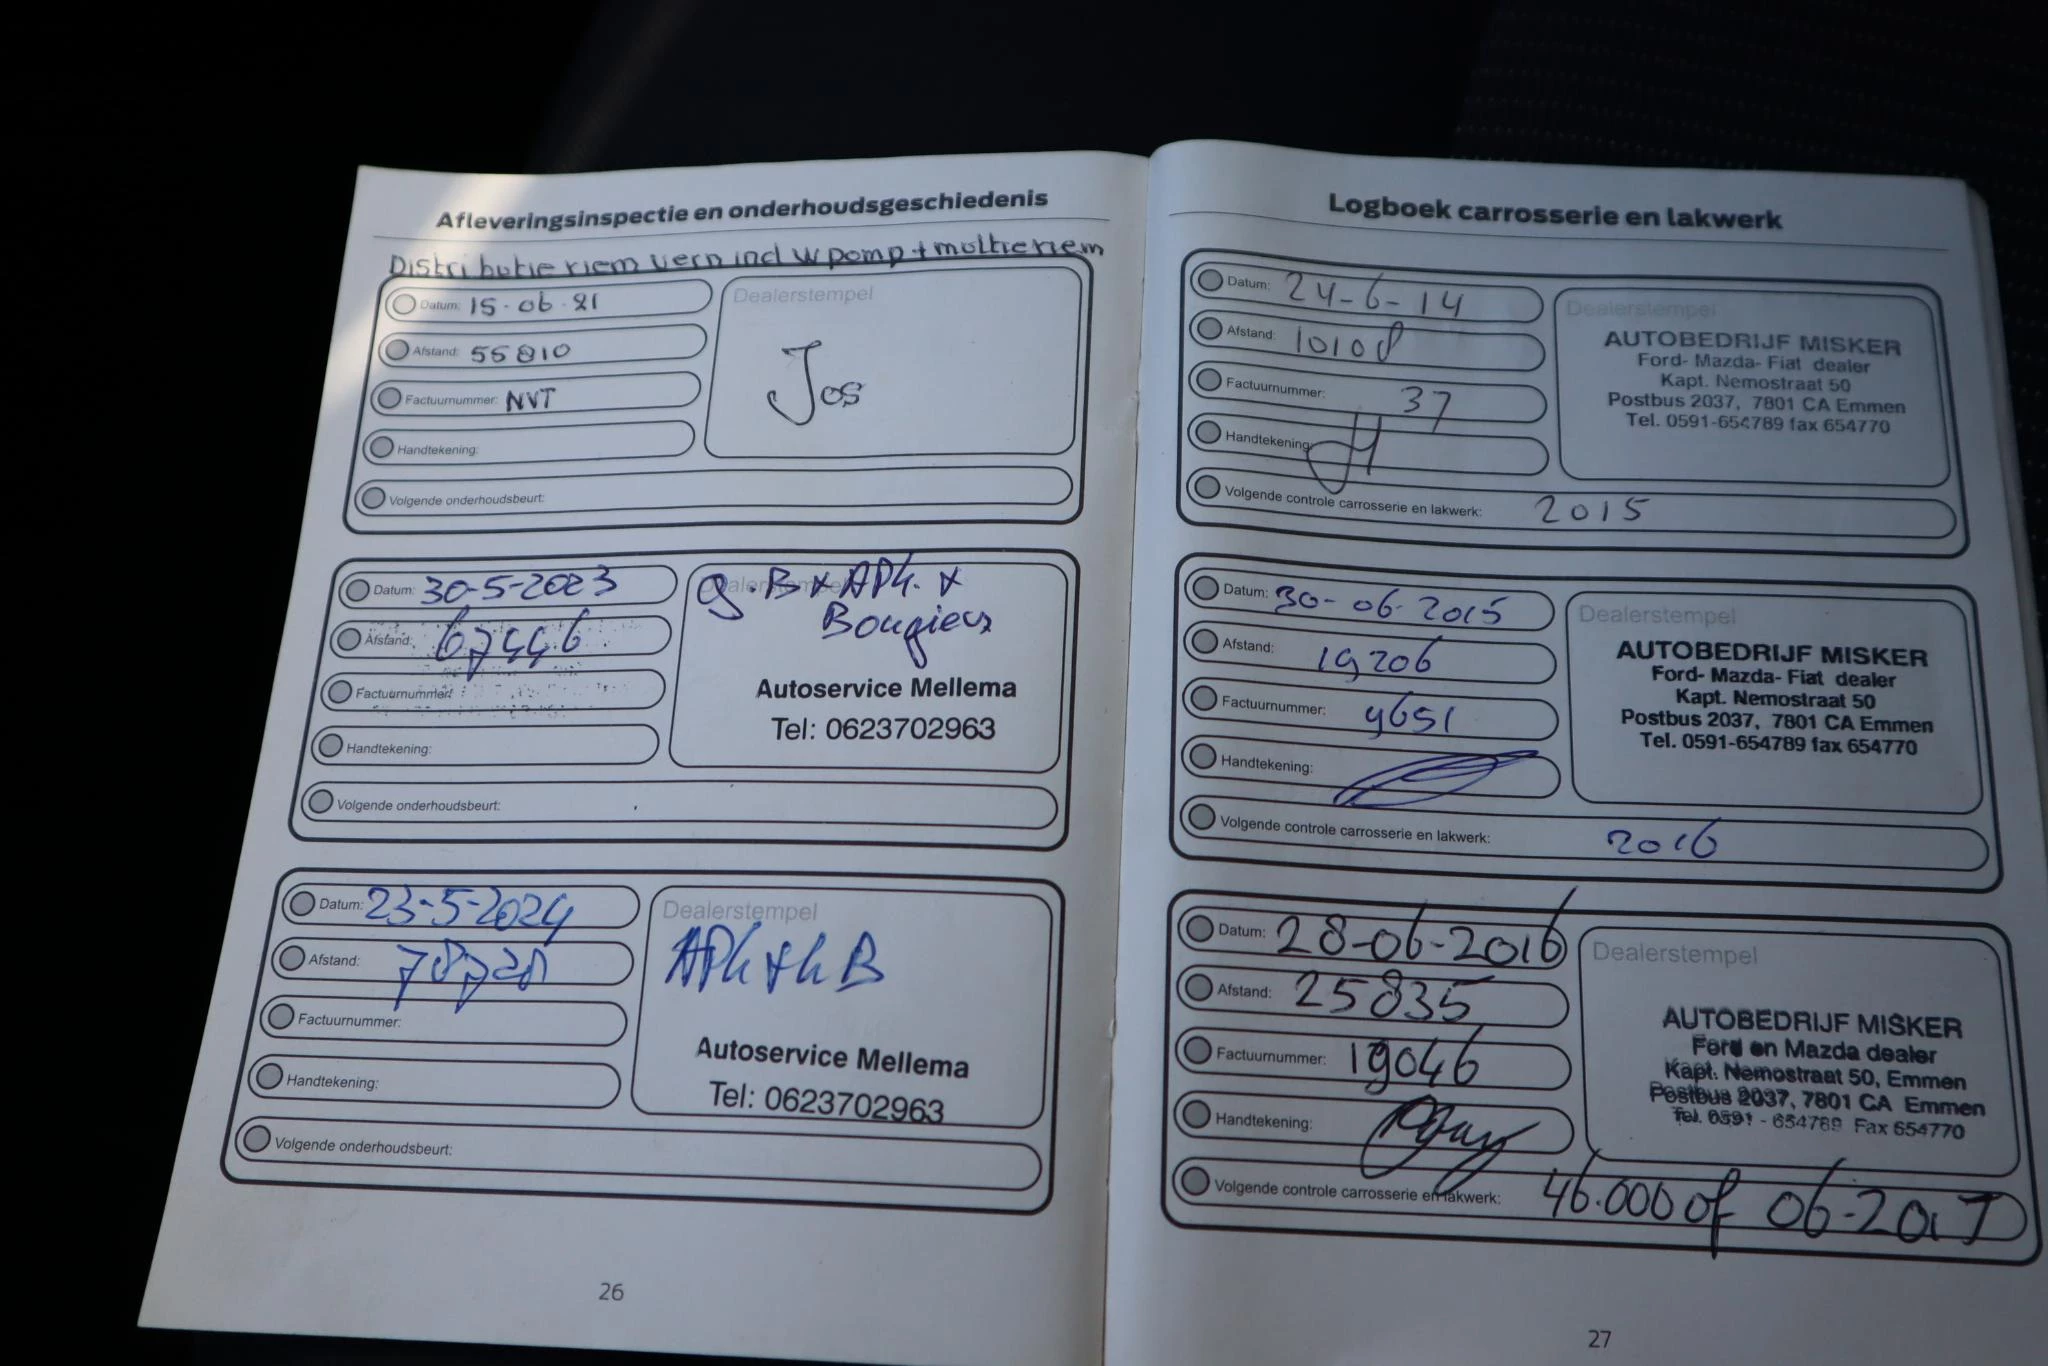 Afleveringsinspectie en onderhoudsgeschiedenis
Distributie riem vern incl w pomp + multieriem
Datum: 15-06-21
Dealerstempel
Afstand: 55810
Jos
Factuurnummer: NVT
Handtekening:
Volgende onderhoudsbeurt:
Datum: 30-5-2023
Dealerstempel
g.B + APK. +
Bougies
Afstand: 67446
Factuurnummer:
Autoservice Mellema
Tel: 0623702963
Handtekening:
Volgende onderhoudsbeurt:
Datum: 23-5-2024
Dealerstempel
APK + k B
Afstand: 78728
Factuurnummer:
Autoservice Mellema
Tel: 0623702963
Handtekening:
Volgende onderhoudsbeurt:
26
Logboek carrosserie en lakwerk
Datum: 24-6-14
Dealerstempel
Afstand: 10108
AUTOBEDRIJF MISKER
Ford- Mazda- Fiat dealer
Kapt. Nemostraat 50
Postbus 2037, 7801 CA Emmen
Tel. 0591-654789 fax 654770
Factuurnummer: 37
Handtekening:
Volgende controle carrosserie en lakwerk: 2015
Datum: 30-06-2015
Dealerstempel
Afstand: 19206
AUTOBEDRIJF MISKER
Ford- Mazda- Fiat dealer
Kapt. Nemostraat 50
Postbus 2037, 7801 CA Emmen
Tel. 0591-654789 fax 654770
Factuurnummer: 9651
Handtekening:
Volgende controle carrosserie en lakwerk: 2016
Datum: 28-06-2016
Dealerstempel
Afstand: 25835
AUTOBEDRIJF MISKER
Ford en Mazda dealer
Kapt. Nemostraat 50, Emmen
Postbus 2037, 7801 CA Emmen
Tel. 0591 - 654789 Fax 654770
Factuurnummer: 19046
Handtekening:
Volgende controle carrosserie en lakwerk: 46.000 of 06-2017
27